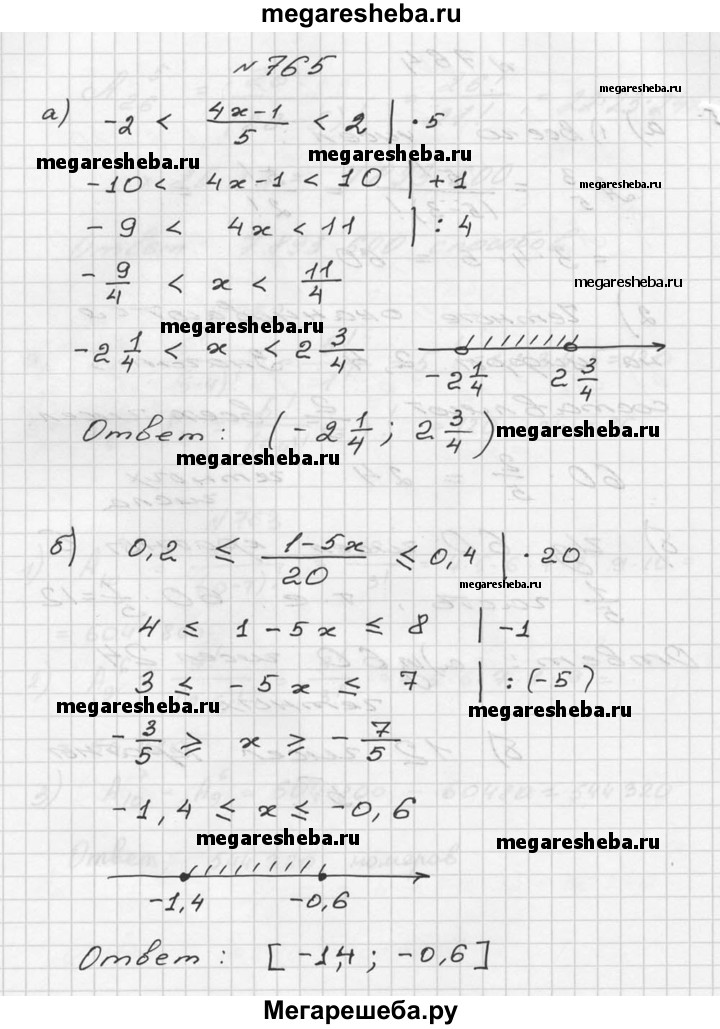 megaresheba.ru
№765
megaresheba.ru
а) -2 < (4x-1)/5 < 2 | · 5
megaresheba.ru megaresheba.ru
-10 < 4x-1 < 10 | +1
megaresheba.ru
- 9 < 4x < 11 | : 4
- 9/4 < x < 11/4
megaresheba.ru
megaresheba.ru
-2 1/4 < x < 2 3/4
-2 1/4 2 3/4
Ответ: (-2 1/4; 2 3/4)
megaresheba.ru
megaresheba.ru
б) 0,2 ≤ (1-5x)/20 ≤ 0,4 | · 20
megaresheba.ru
4 ≤ 1-5x ≤ 8 | -1
3 ≤ -5x ≤ 7 | : (-5)
megaresheba.ru megaresheba.ru
- 3/5 ≥ x ≥ - 7/5
-1,4 ≤ x ≤ -0,6
megaresheba.ru megaresheba.ru
-1,4 -0,6
Ответ: [-1,4; -0,6]
Мегарешеба.ру